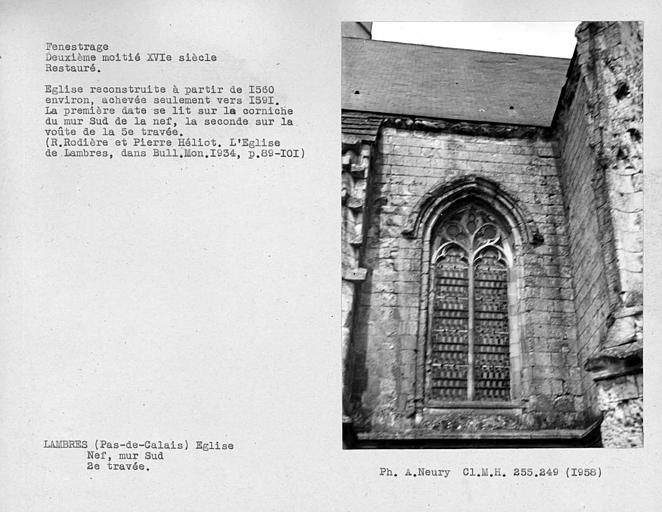 Fenestrage
Deuxième moitié XVIe siècle
Restauré.
Eglise reconstruite à partir de I560
environ, achevée seulement vers I59I.
La première date se lit sur la corniche
du mur Sud de la nef, la seconde sur la
voûte de la 5e travée.
(R.Rodière et Pierre Héliot. L'Eglise
de Lambres, dans Bull.Mon.I934, p.89-IOI)
LAMBRES (Pas-de-Calais) Eglise
Nef, mur Sud
2e travée.
Ph. A.Neury Cl.M.H. 255.249 (I958)